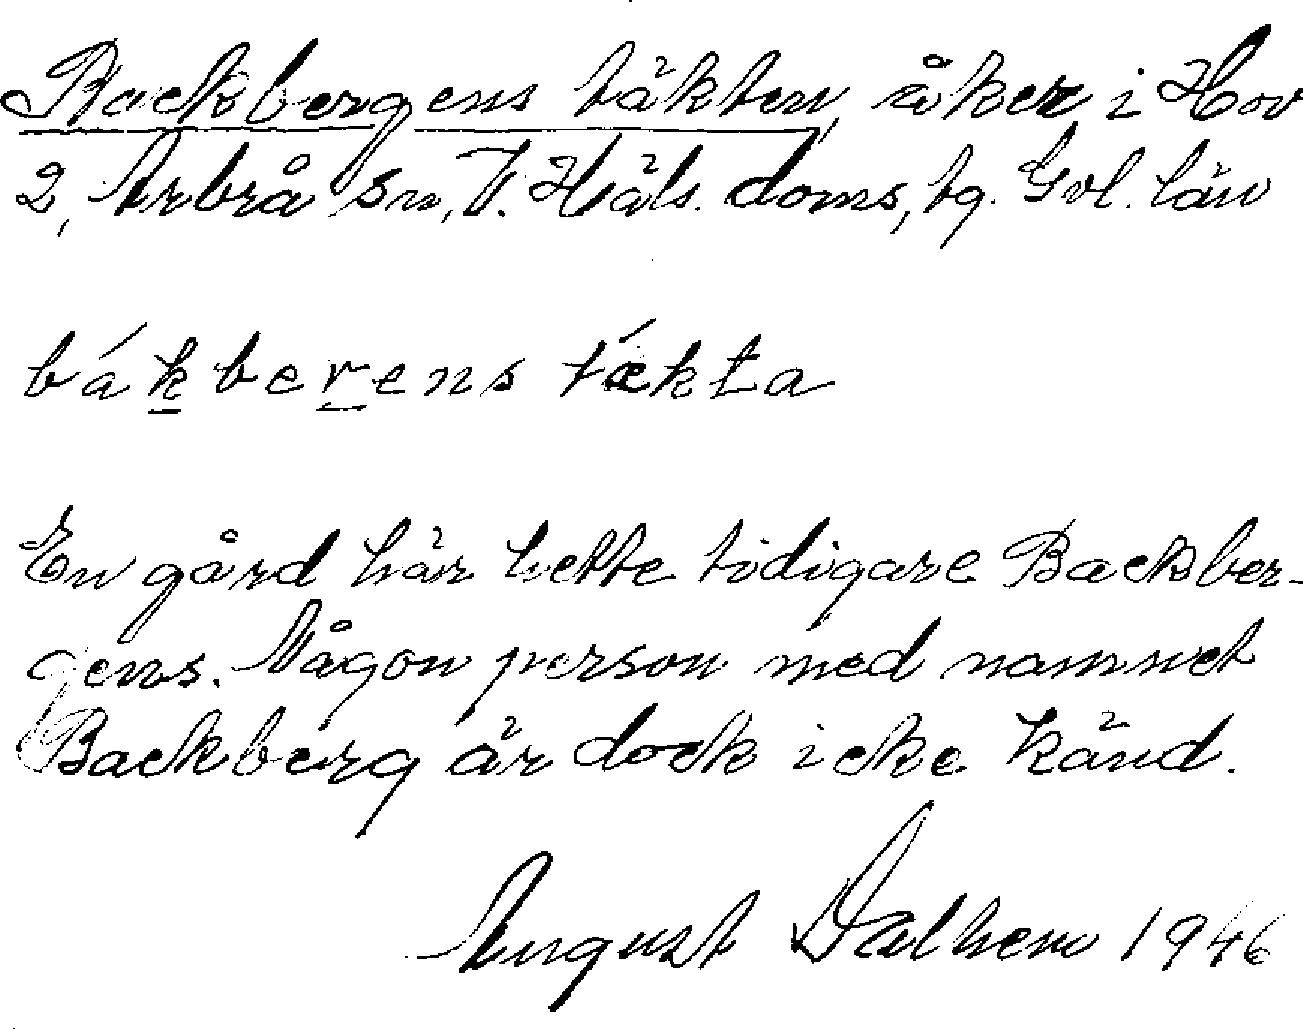 Backbergens täkten, åker i Hov
2, Arbrå sn, V. Häls. doms, tg. Gvl. län
bákberens tǽkta
En gård här hette tidigare Backber-
gens. Någon person med namnet
Backberg är dock icke känd.
August Dalhem 1946